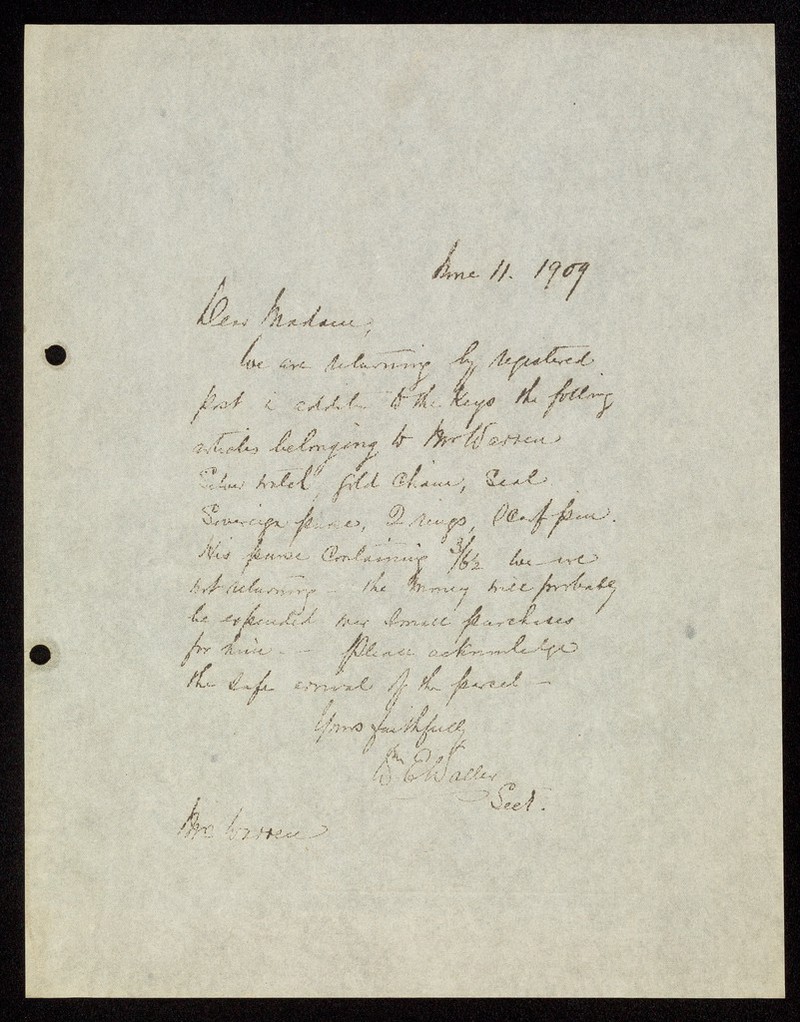 June 11. 1909
Dear Madam,
We are returning by registered
post in addit to the keys the folling
articles belonging to Mr Warren
Silver watch, gold chain, Seal
Sovereign purse, 2 rings, Scarf pin.
His purse containing 3/6½ we are
not returning - the money will probably
be expended in small purchases
for him. - Please acknowledge
the safe arrival of the parcel -
Yours faithfully
Wm E Waller
Sect.
Mrs Warren